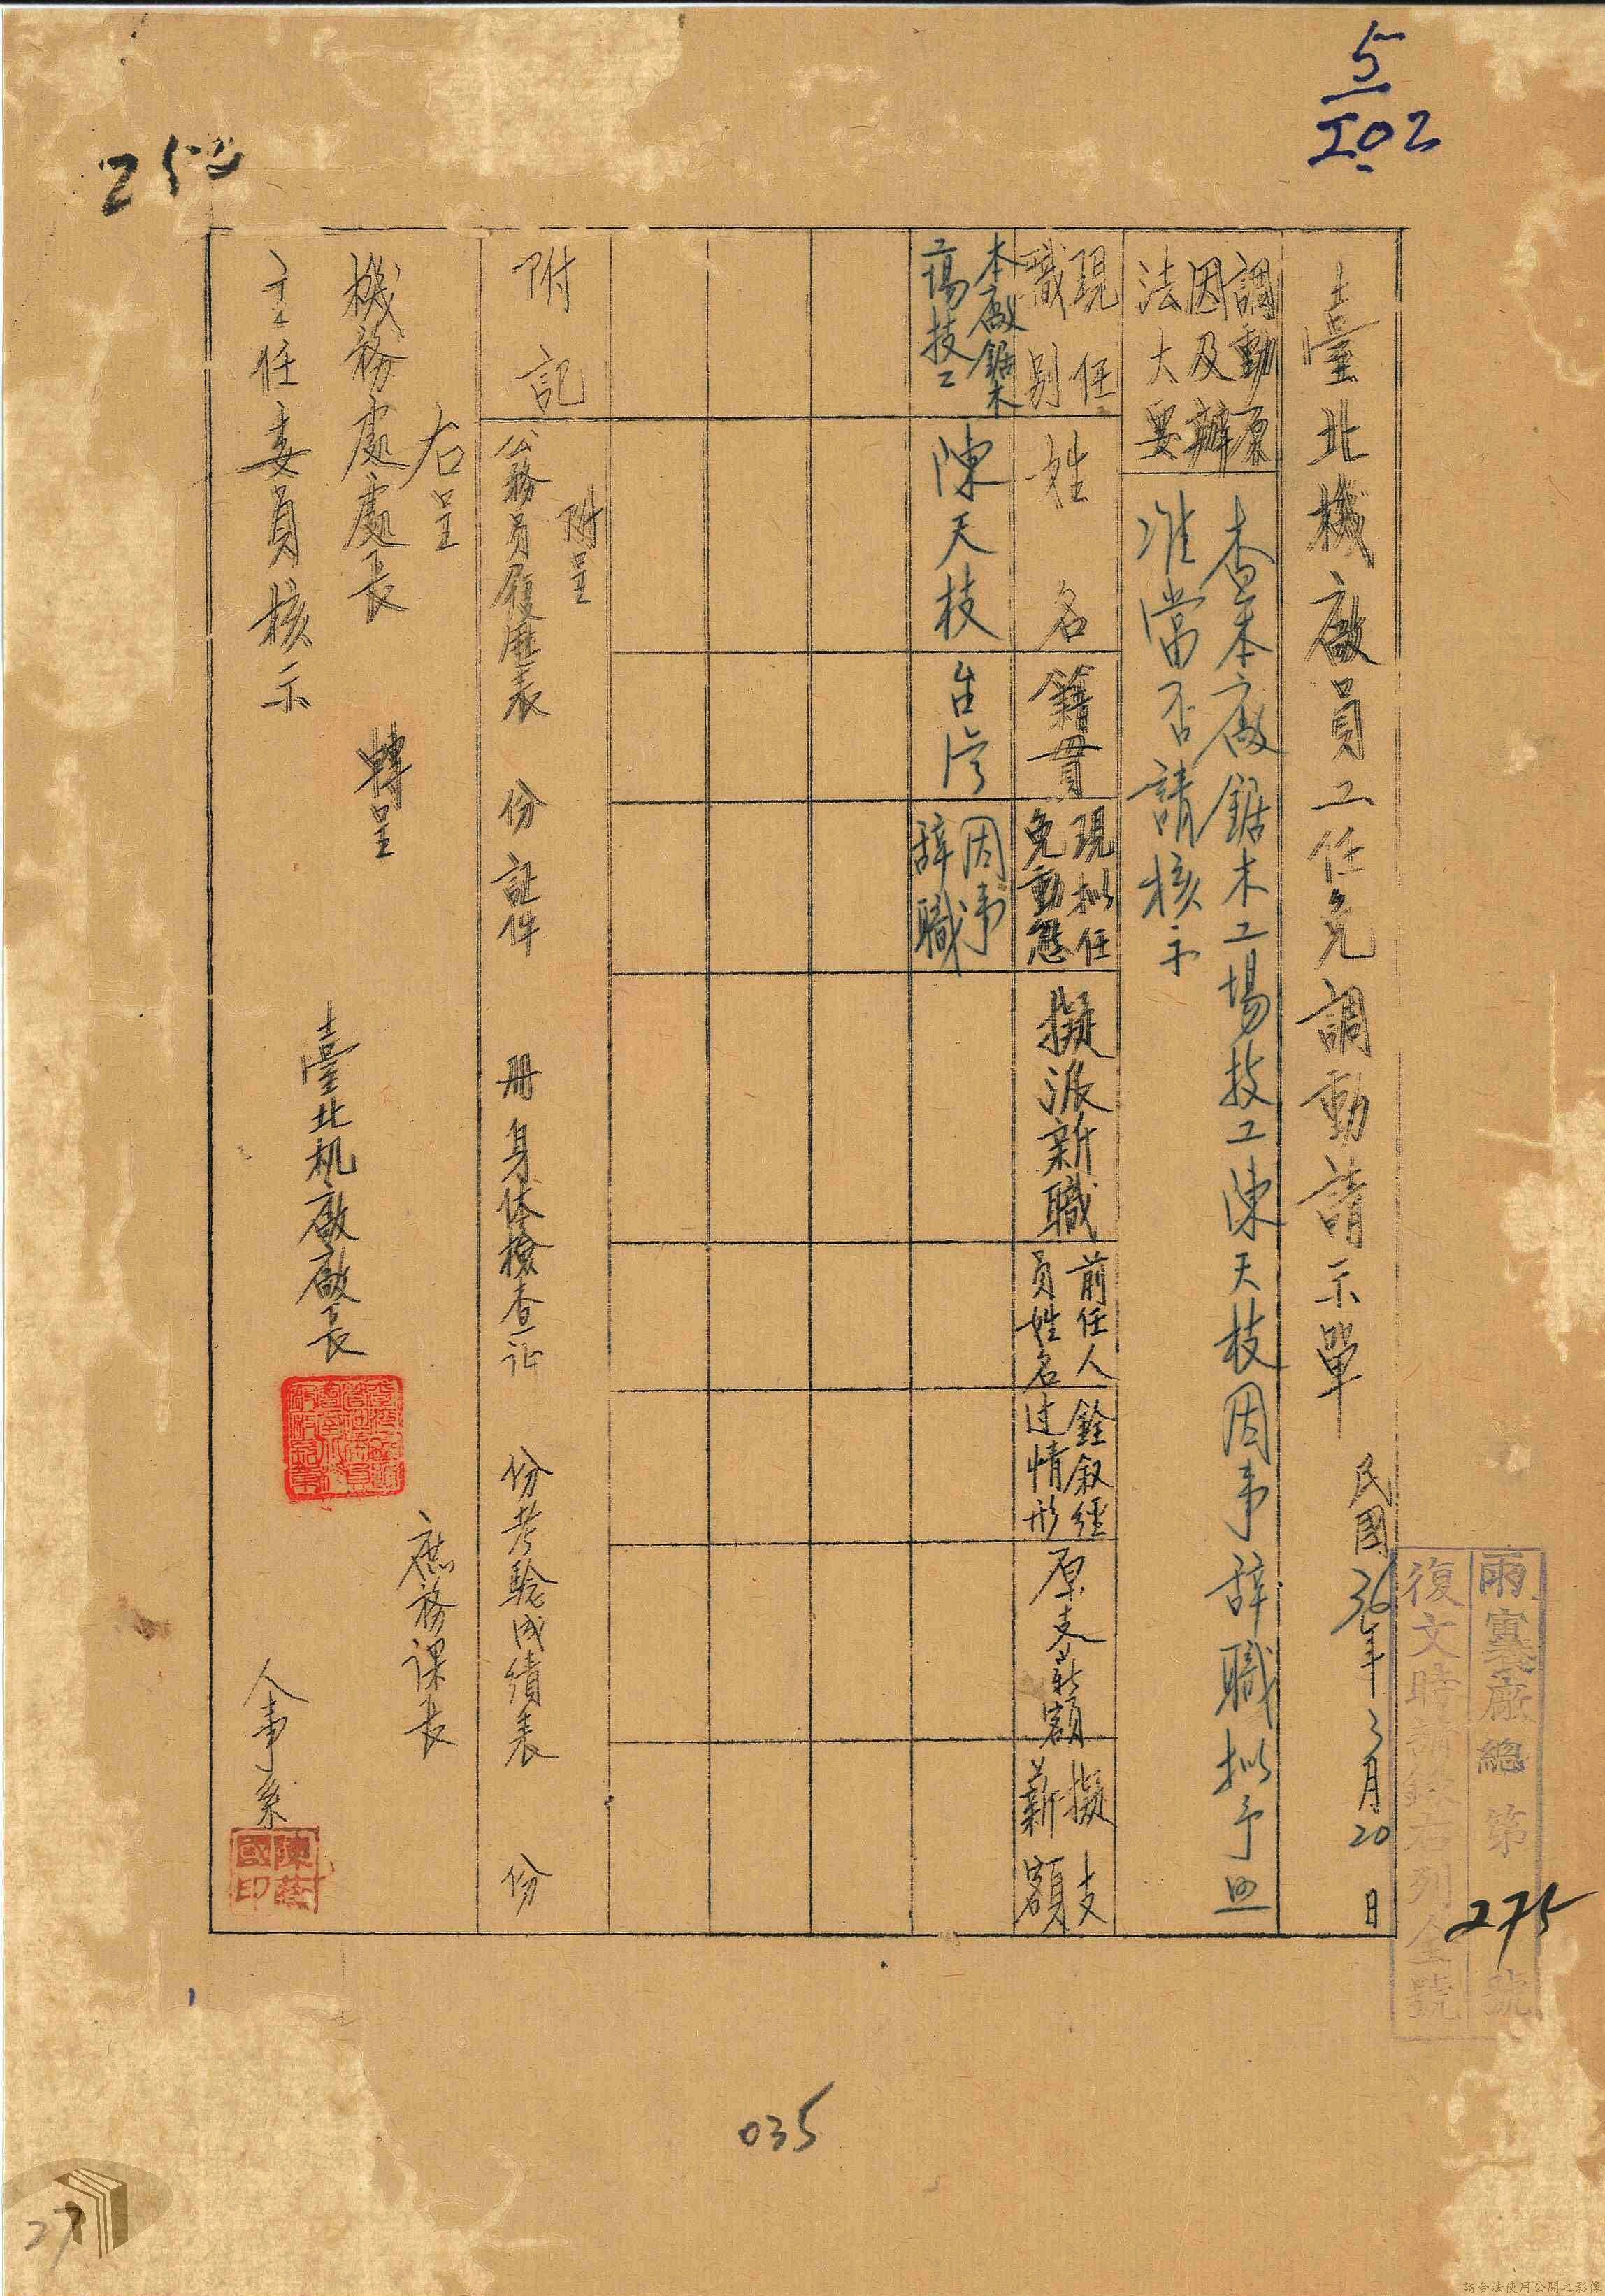 5
I02
250
臺北機廠員工任免調動請示單
民國36年3月20日
雨寰廠總 第275號
復文時請敘右列全號
調動原
因及辦
法大要
查本廠鋸木工場技工陳天枝因事辞職拟予照
准當否請核示
現任
職別
姓名
籍貫
現拟任
免動態
擬派新職
前任人
員姓名
銓叙經
过情形
原支薪額
擬支
薪額
本廠鋸木
工場技工
陳天枝
台湾
因事
辞職
附記
附呈
公務員履歷表 份 証件 册 身体檢查证 份 考驗成績表 份
右呈
機務處處長 轉呈
主任委員核示
臺北机廠廠長
庶務课長
人事系
陳
國印
035
27
請合法使用公開之影像